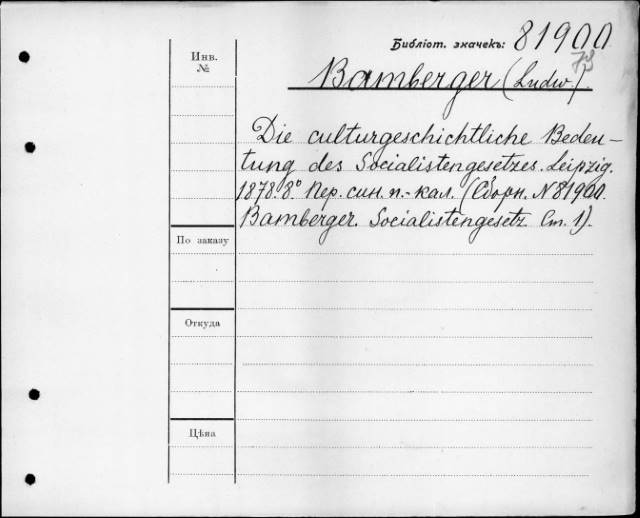 Библіот. значекъ: 81900
73
Инв.
№
Bamberger (Ludw.).
Die culturgeschichtliche Bedeu-
tung des Socialistengesetzes. Leipzig.
1878. 8° Пер. син. п.-кал. (Сборн. N 81900.
Bamberger. Socialistengesetz. Ст. 1).
По заказу
Откуда
Цѣна